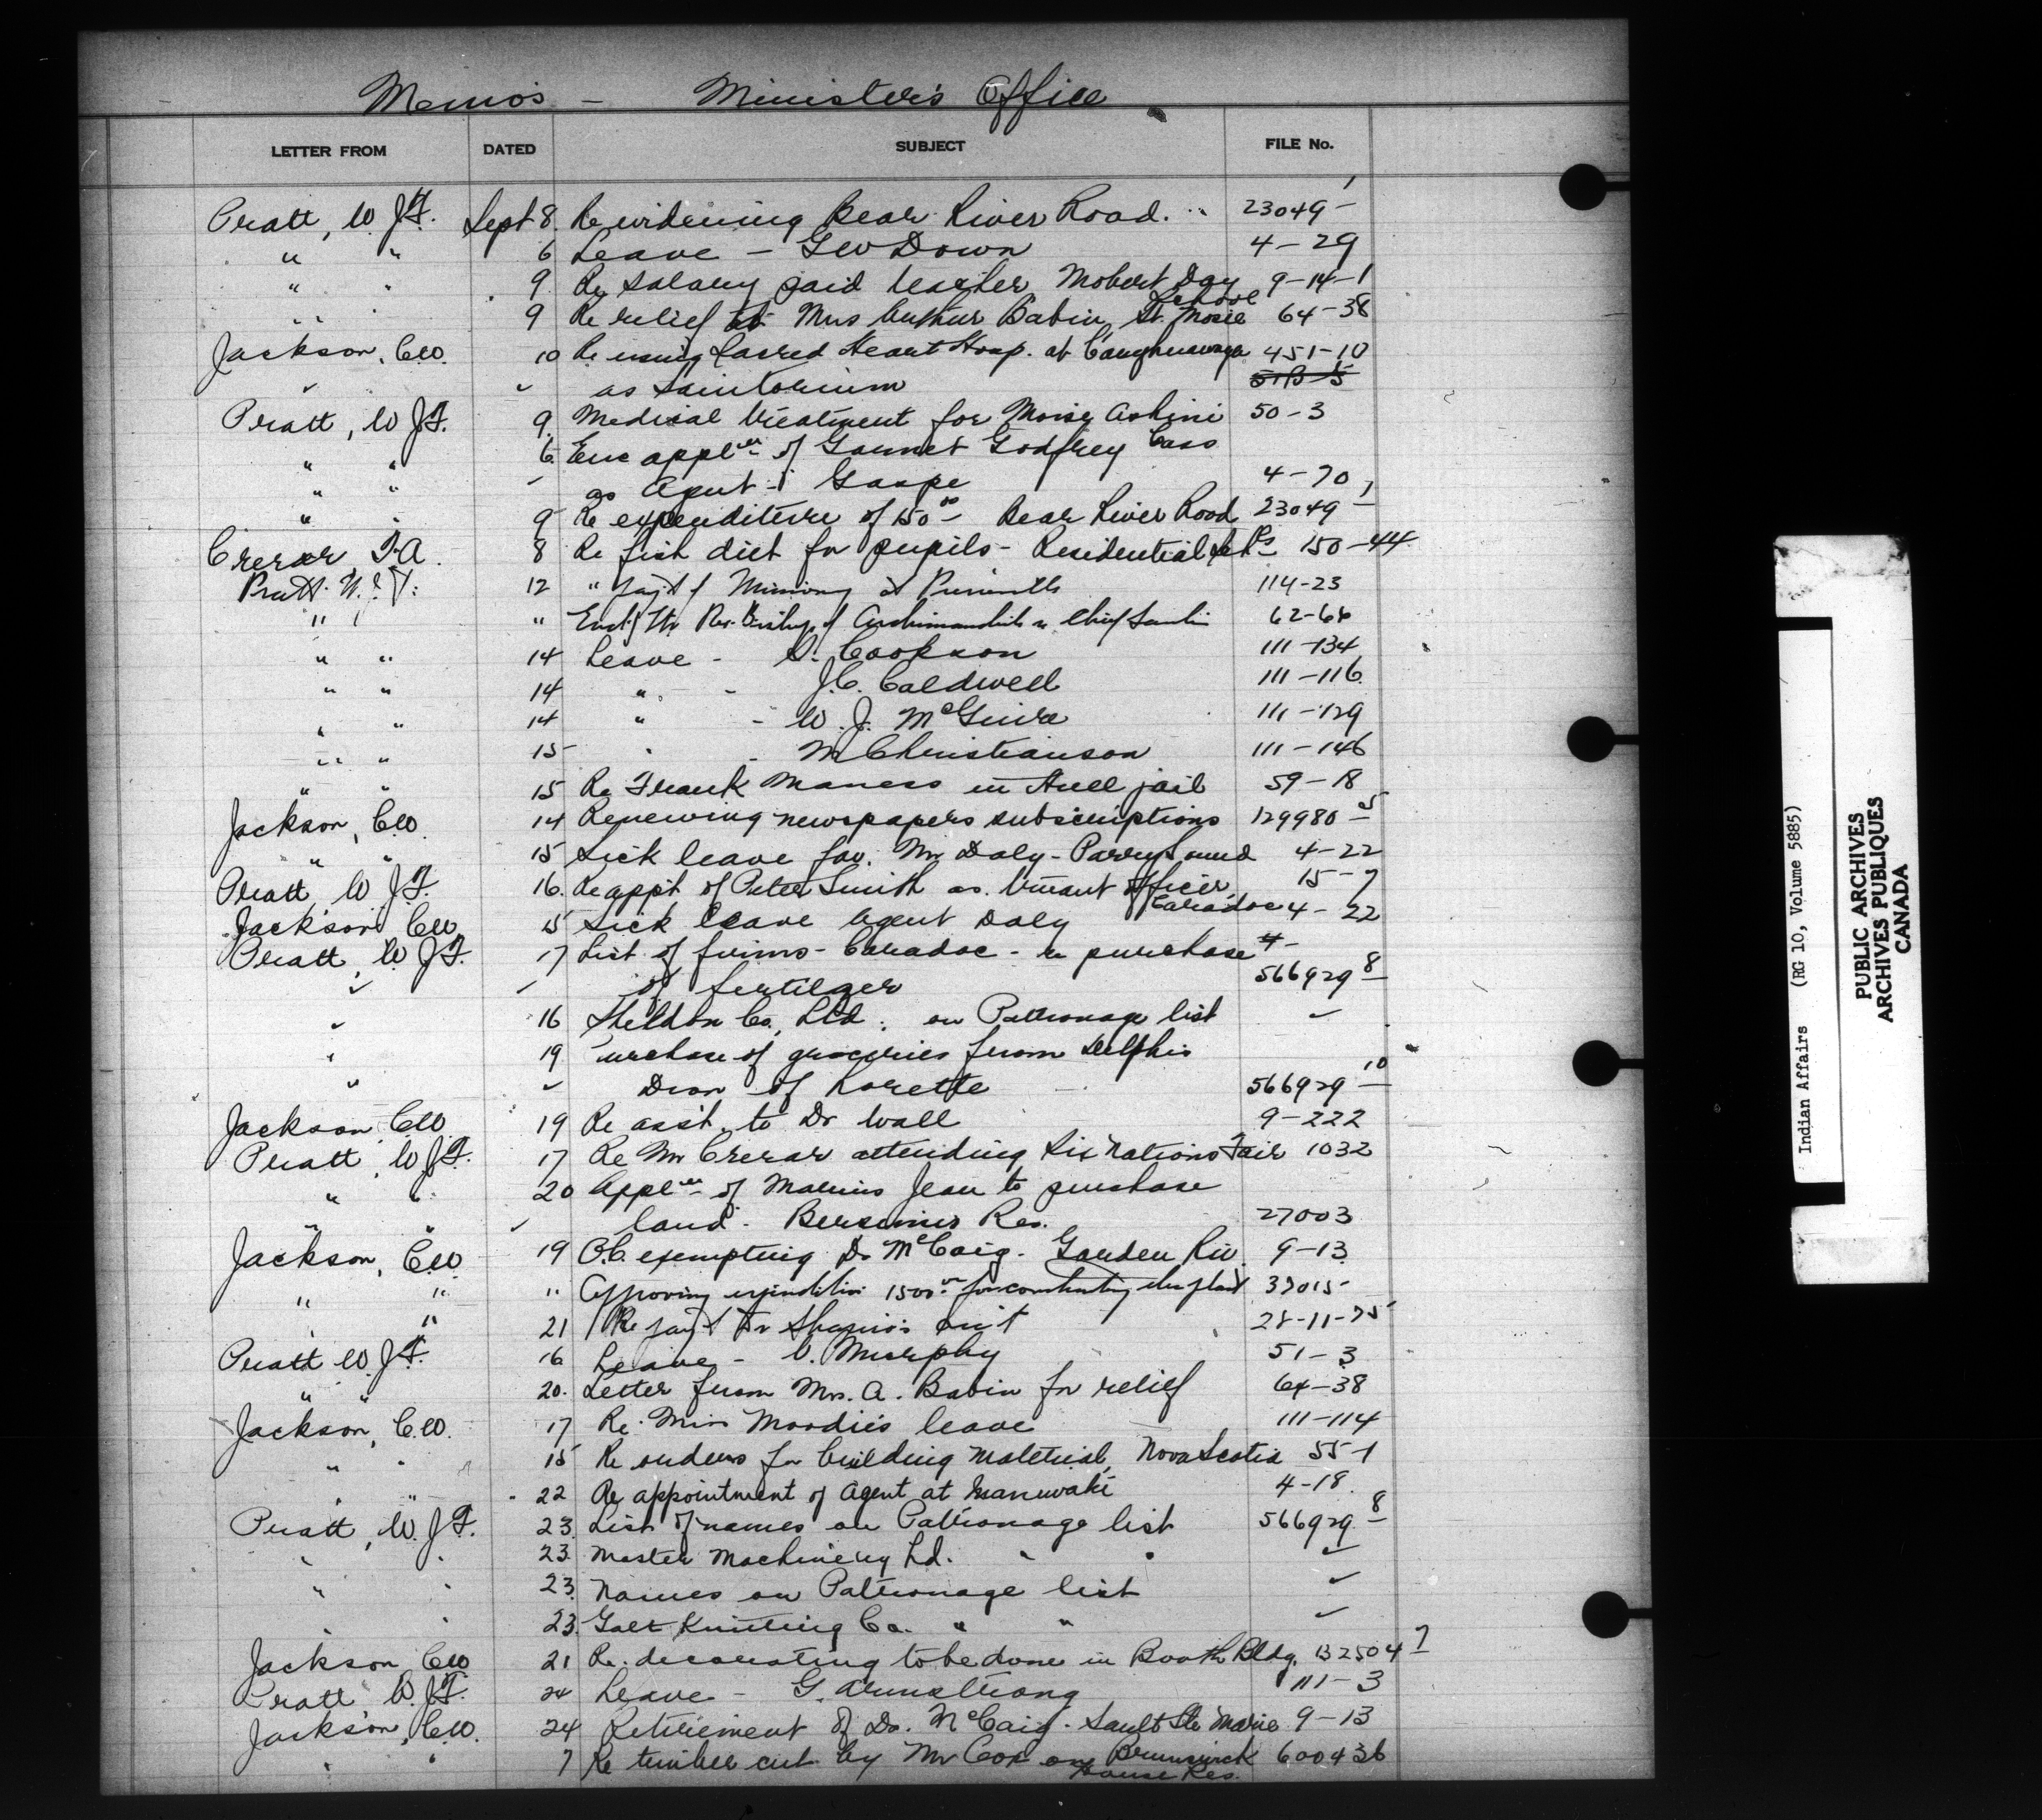 Memo's - Minister's Office
LETTER FROM DATED SUBJECT FILE No.
Pratt, W. J.F. Sept 8. Re widening Bear River Road. 23049-1
" " 6 Leave - Geo Down 4-29
" " 9. Re salary paid teacher Mobert Day School 9-14-1
" " 9 Re relief to Mrs Arthur Babin, St. Mosie 64-38
Jackson, C.W. 10 Re using Sacred Heart Hosp. at Caughnawaga 451-10
" " as Sanitorium
Pratt, W J.F. 9. Medical treatment for Moise Ashini 50-3
" " 6. Enc appl'n of Garnet Godfrey Cass
" " " as Agent - Gaspe 4-70
" " 9 Re expenditure of 150.00 - Bear River Road 23049-1
Crerar, T.A. 8 Re fish diet for pupils - Residential Schs 150-44
Pratt. W. J. F. 12 " pay't 114-23
" " " 62-66
" " 14 Leave - S. Cookson 111-134
" " 14 " - J.C. Caldwell 111-116
" " 14 " - W. J. McGuire 111-129
" " 15 " - M Christianson 111-146
" " 15 Re Frank Maness in Hull jail 59-18
Jackson, C.W. 14 Renewing newspapers subscriptions 129980-5
" " 15 Sick leave for Mr Daly - Parry Sound 4-22
Pratt, W J.F. 16. Re app't of Peter Smith as Truant Officer, Caradoc 15-7
Jackson C.W. 15 Sick leave Agent Daly 4-22
Pratt, W. J.F. 17 List of firms - Caradoc - re purchase
" " of fertilger 566929-8
" 16 Sheldon Co, Ltd. on Patronage list "
" 19 Purchase of groceries from Delphis
" " Dion of Lorette 566929-10
Jackson C.W. 19 Re ass't. to Dr Wall 9-222
Pratt, W. J.F. 17 Re Mr Crerar attending Six Nations Fair 1032
" " 20 Appl'n of Marius Jean to purchase
" " " land - Bersimis Res. 27003
Jackson, C.W. 19 O.C. exempting Dr McCaig - Garden Riv. 9-13
" " " Approving expenditure 1500.00 for constructing 37015
" " 21 Re pay't Dr Shapiro's 28-11-25
Pratt W. J.F. 16 Leave - V. Murphy 51-3
" " 20. Letter from Mrs. A. Babin for relief 64-38
Jackson, C.W. 17 Re. Miss Moodie's leave 111-114
" " 15 Re orders for building material, Nova Scotia 55-1
" " 22 Re appointment of Agent at Maniwaki 4-18.
Pratt, W. J.F. 23. List of names on Patronage list 566929-8
" " 23. Master Machinery Ltd. " " "
" " 23. Names on Patronage list "
" " 23. Galt Knitting Co. " " "
Jackson C.W. 21 Re. decorating to be done in Booth Bldg. 132504-7
Pratt W. J.F. 24 Leave - G. Armstrong 111-3
Jackson, C.W. 24 Retirement of Dr. McCaig - Sault Ste Marie 9-13
" " 7 Re timber cut by Mr Cox on Brunswick House Res. 600436
Indian Affairs (RG 10, Volume 5885)
PUBLIC ARCHIVES
ARCHIVES PUBLIQUES
CANADA